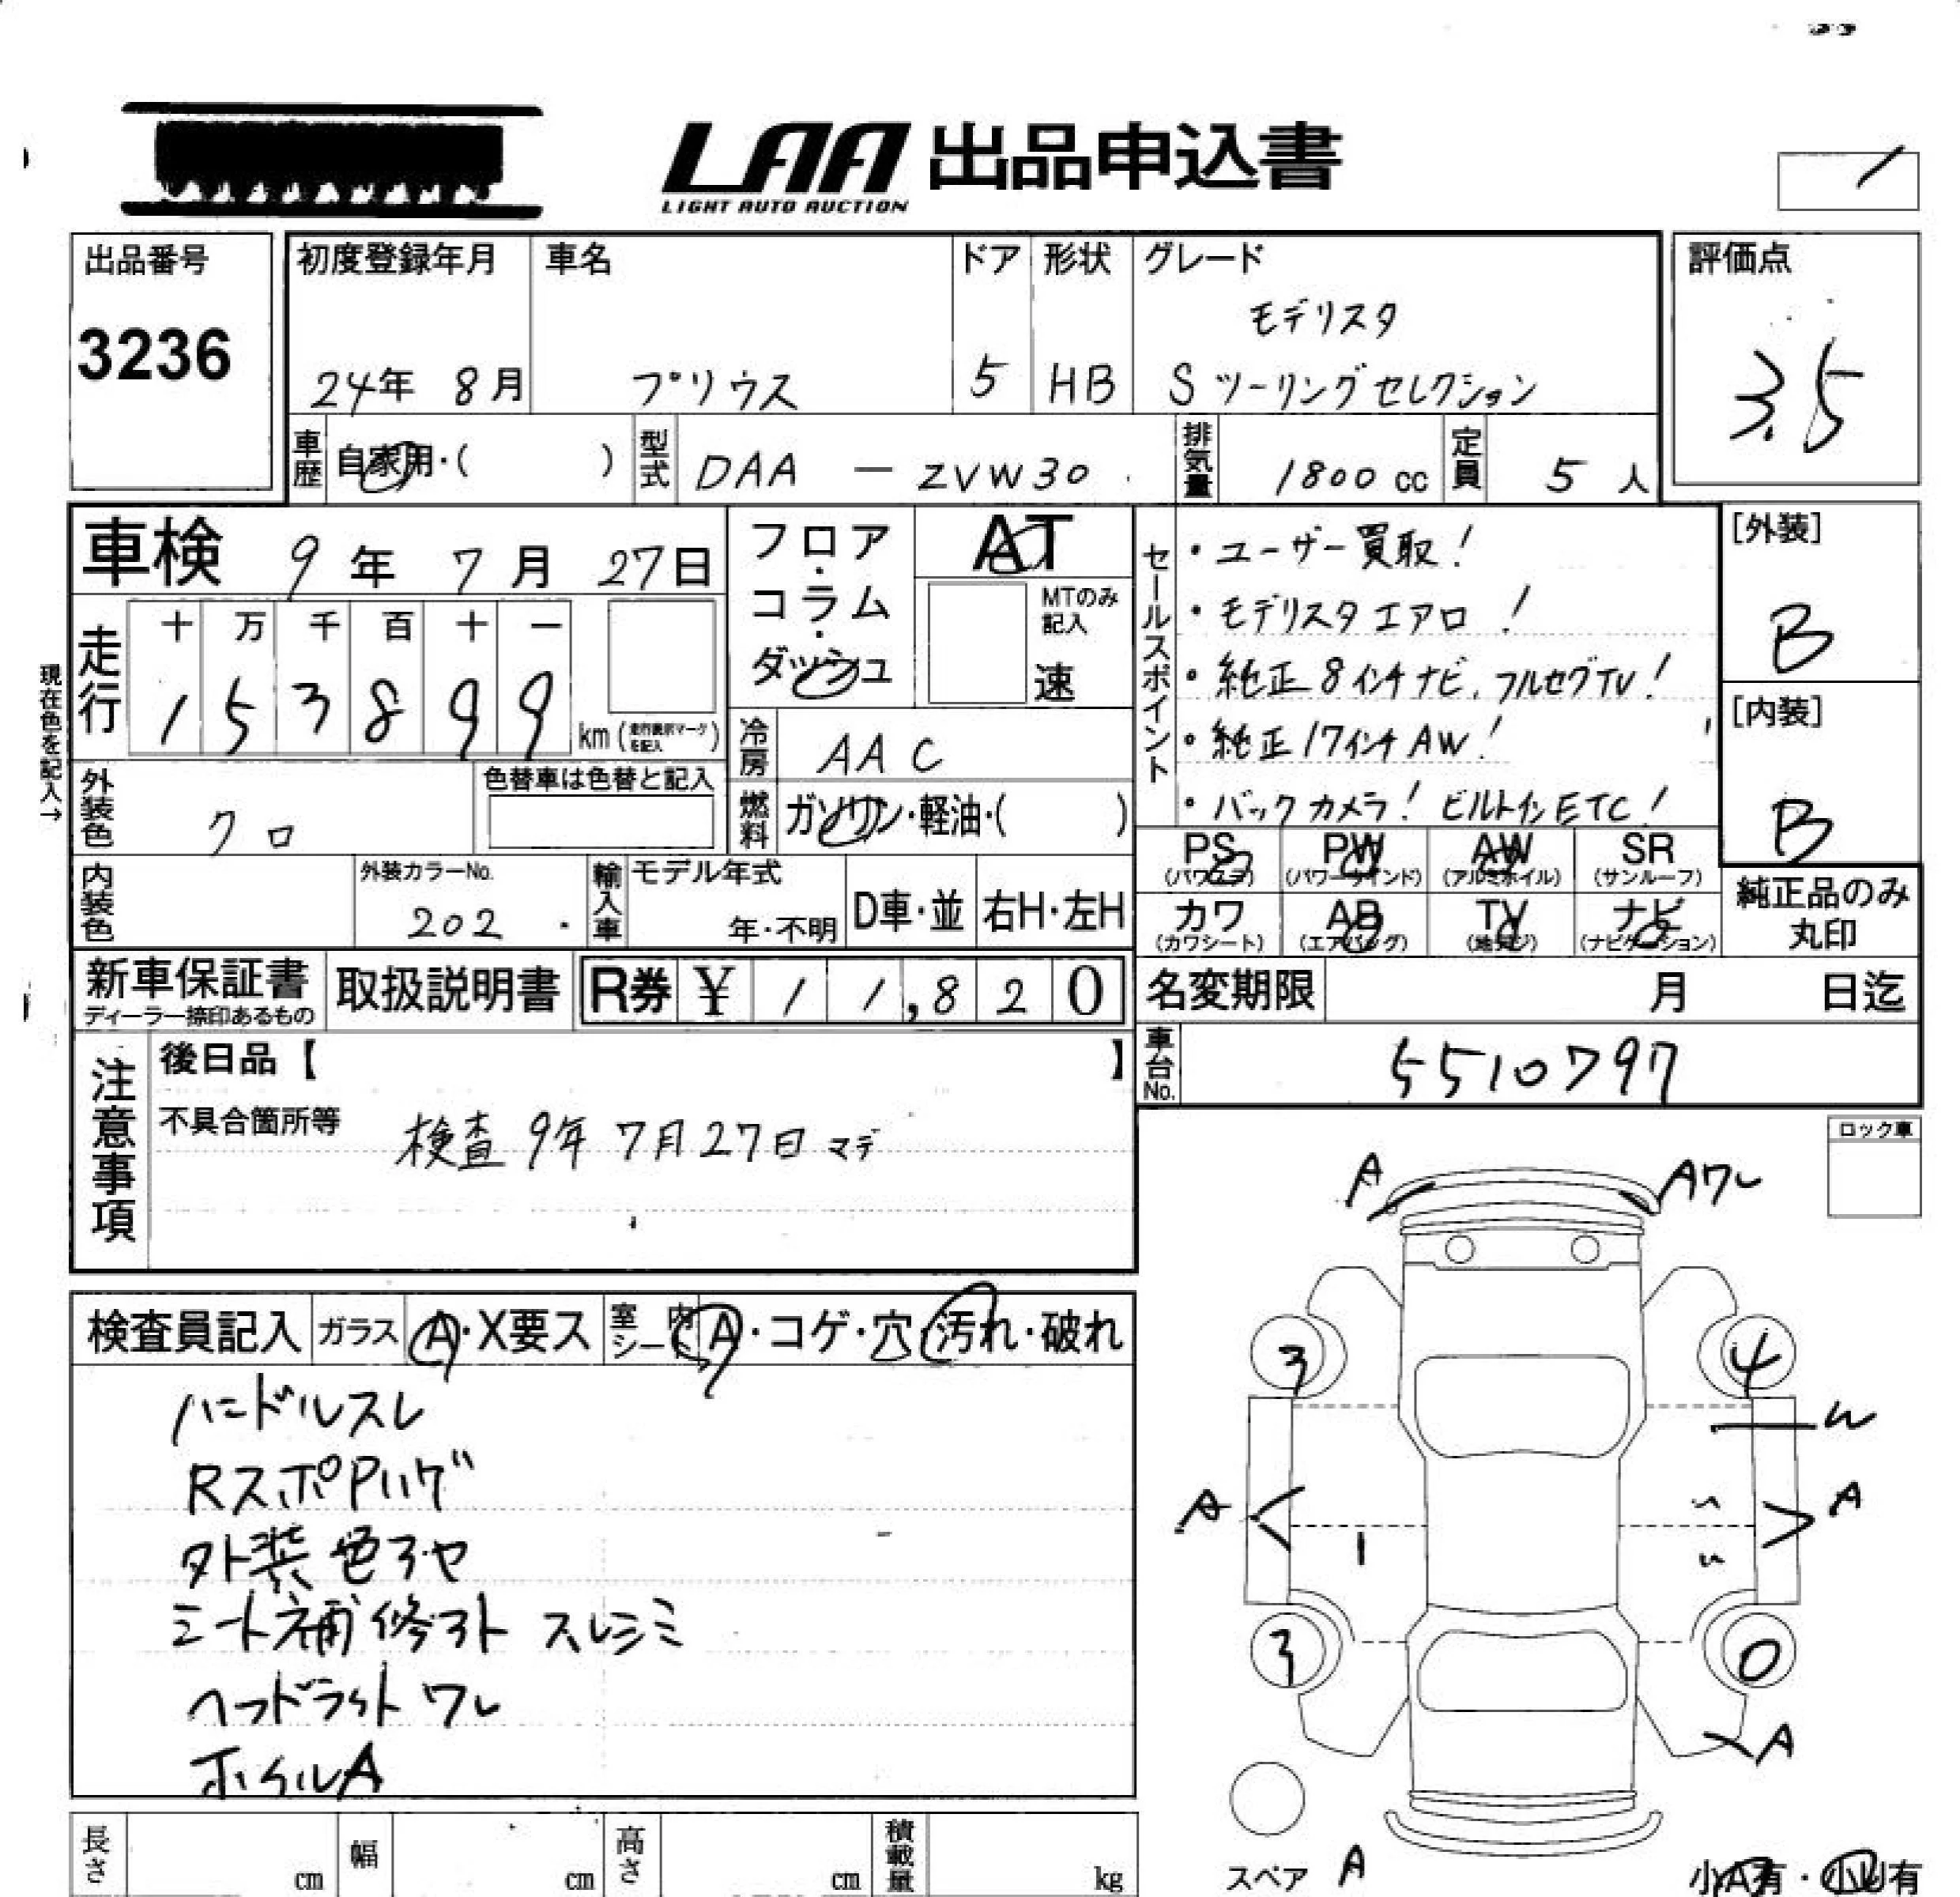 LAA 出品申込書
LIGHT AUTO AUCTION
出品番号
3236
初度登録年月
24年 8月
車名
プリウス
ドア
5
形状
HB
グレード
モデリスタ
S ツーリングセレクション
評価点
3.5
車歴
自家用・( )
型式
DAA - ZVW30
排気量
1800 cc
定員
5 人
車検 9年 7月 27日
現在色を記入→
走行
十 万 千 百 十 一
1 5 3 8 9 9
km (走行表示マークを記入)
フロア・コラム・ダッシュ
AT
MTのみ記入
速
冷房
AAC
燃料
ガソリン・軽油・( )
外装色
クロ
色替車は色替と記入
内装色
外装カラーNo.
202
輸入車
モデル年式
年・不明
D車・並
右H・左H
セールスポイント
・ユーザー買取!
・モデリスタエアロ!
・純正8インチナビ、フルセグTV!
・純正17インチAW!
・バックカメラ! ビルトインETC!
[外装]
B
[内装]
B
PS
(パワステ)
PW
(パワーウインド)
AW
(アルミホイル)
SR
(サンルーフ)
カワ
(カワシート)
AB
(エアバッグ)
TV
(地デジ)
ナビ
(ナビゲーション)
純正品のみ
丸印
新車保証書
ディーラー捺印あるもの
取扱説明書
R券 ¥ 11,820
名変期限 月 日迄
車台No.
5510797
注意事項
後日品【 】
不具合箇所等
検査 9年 7月27日マデ
ロック車
検査員記入
ガラス
A・X要ス
室内シート
A・コゲ・穴・汚れ・破れ
ハンドルスレ
RスポPハゲ
外装色アセ
シート補修アト スレシミ
ヘッドライトワレ
ホイルA
A
Aワレ
3
4
W
A
A
1
3
0
A
スペア
A
小A有・小U有
長さ cm
幅 cm
高さ cm
積載量 kg